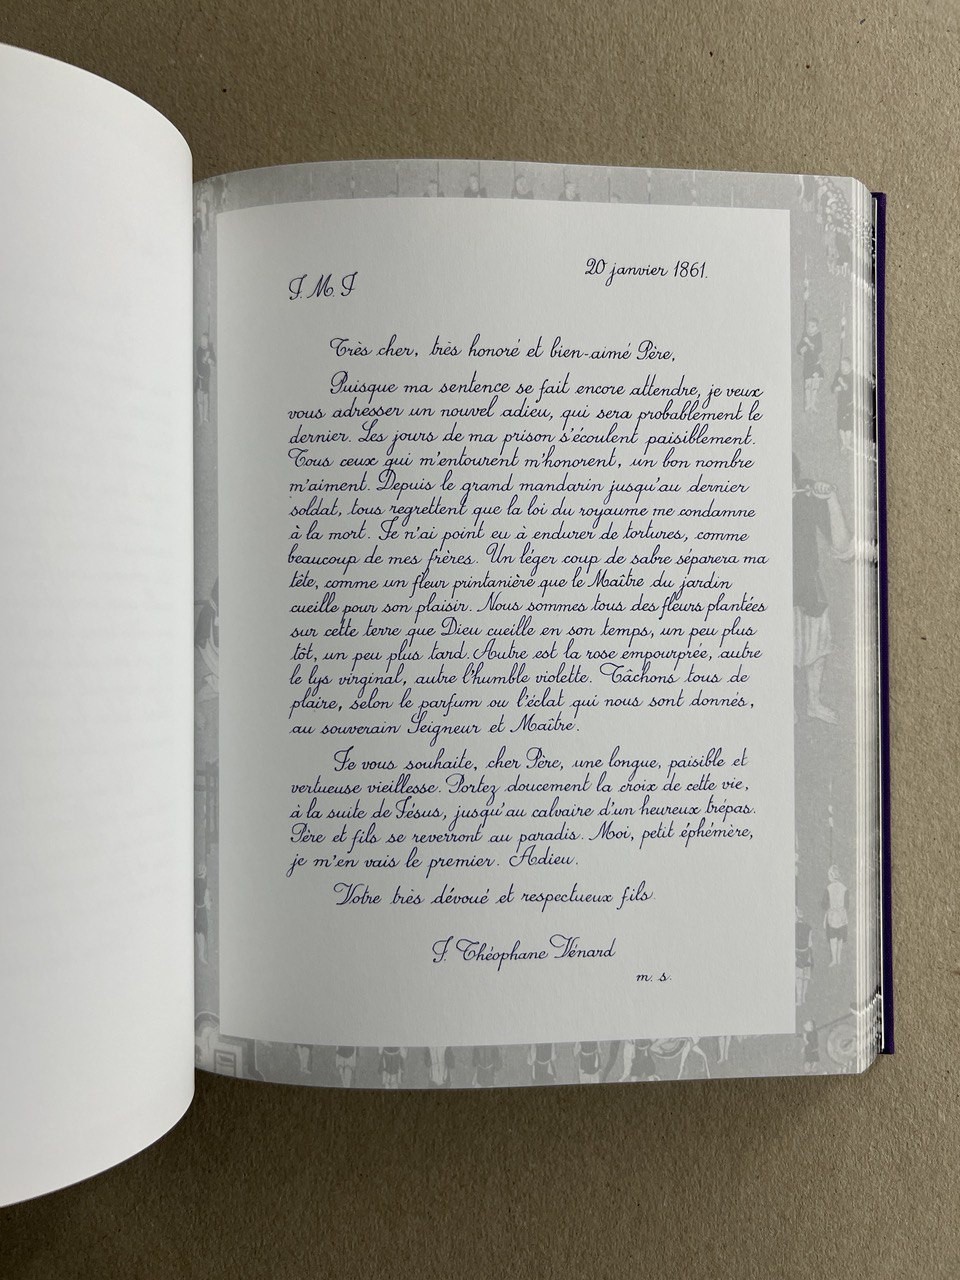 20 janvier 1861.
J. M. J
Très cher, très honoré et bien-aimé Père,
Puisque ma sentence se fait encore attendre, je veux
vous adresser un nouvel adieu, qui sera probablement le
dernier. Les jours de ma prison s'écoulent paisiblement.
Tous ceux qui m'entourent m'honorent, un bon nombre
m'aiment. Depuis le grand mandarin jusqu'au dernier
soldat, tous regrettent que la loi du royaume me condamne
à la mort. Je n'ai point eu à endurer de tortures, comme
beaucoup de mes frères. Un léger coup de sabre séparera ma
tête, comme un fleur printanière que le Maître du jardin
cueille pour son plaisir. Nous sommes tous des fleurs plantées
sur cette terre que Dieu cueille en son temps, un peu plus
tôt, un peu plus tard. Autre est la rose empourprée, autre
le lys virginal, autre l'humble violette. Tâchons tous de
plaire, selon le parfum ou l'éclat qui nous sont donnés,
au souverain Seigneur et Maître.
Je vous souhaite, cher Père, une longue, paisible et
vertueuse vieillesse. Portez doucement la croix de cette vie,
à la suite de Jésus, jusqu'au calvaire d'un heureux trépas.
Père et fils se reverront au paradis. Moi, petit éphémère,
je m'en vais le premier. Adieu.
Votre très dévoué et respectueux fils.
J. Théophane Vénard
m. s.